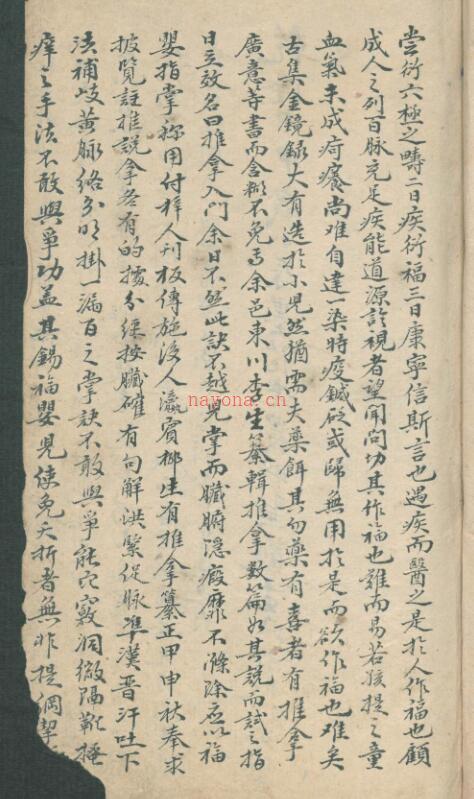 尝衍六極之疇二曰疾衍福三曰康寧信斯言也遇疾而醫之是於人作福也顧
成人之列百脉充足疾能道源診視者望聞問切其作福也雖而易若孩提之童
血氣未成疴癢尚难自達一染時疫鍼砭或歸無用於是而欲作福也难矣
古集金鏡録大有造於小児然猶需夫藥餌其勿藥有喜者有推拿
廣意等書而含糊不免焉余邑東川李生纂輯推拿数篇如其説而試之指
日立效名曰推拿入門余曰不然此訣不越児掌而臟腑隱瘕靡不滌除应以福
嬰指掌称用付梓人刊板傳施後人瀛賓柳生有推拿纂正甲申秋奉求
披覽註推説拿各有的據分經按臟確有句解洪緊促脉準漢晉汗吐下
法補岐黄脉絡分明掛一漏百之掌訣不敢與爭能穴竅洞徹隔靴搔
痒之手法不敢與爭功益其錫福嬰児使免夭折者無非提綱挈
nayona.cn